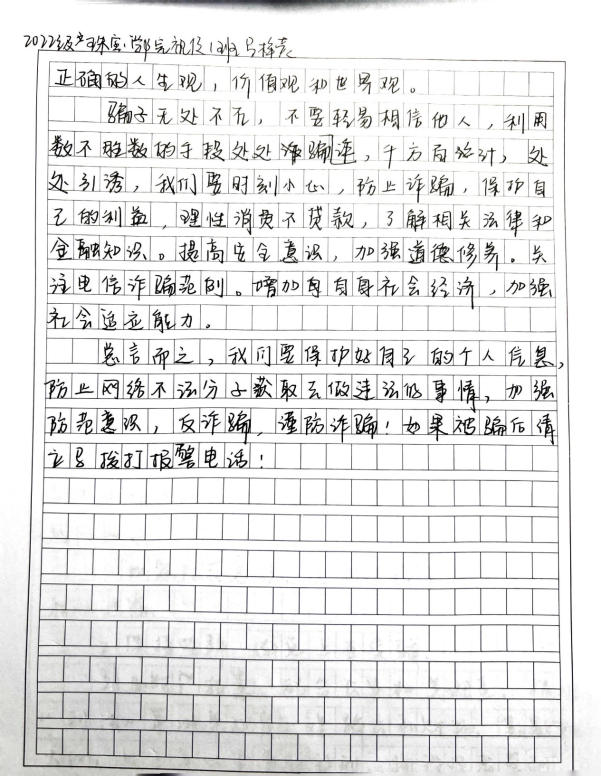 2022级 珠宝 1班
正确的人生观，价值观和世界观。
骗子无处不在，不要轻易相信他人，利用
数不胜数的手段处处诈骗，千方百计，处
处引诱，我们要时刻小心，防止诈骗，保护自
己的利益，理性消费不贷款，了解相关法律和
金融知识。提高安全意识，加强道德修养。关
注电信诈骗范例。增加自身社会经济，加强
社会适应能力。
总言而之，我们要保护好自己的个人信息，
防止网络不法分子获取去做违法的事情，加强
防范意识，反诈骗，谨防诈骗！如果被骗后请
立马拨打报警电话！